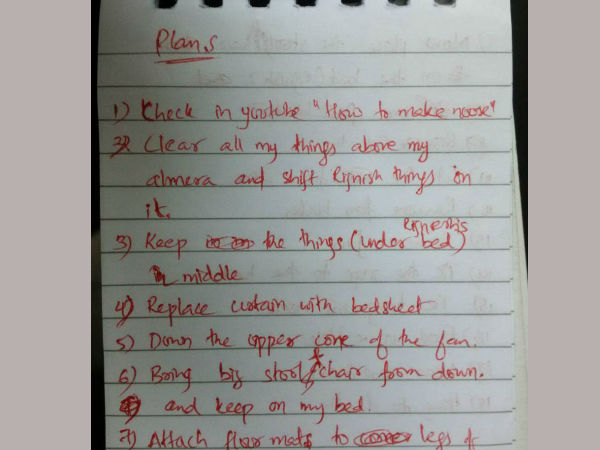 Plans
1) Check in youtube "How to make noose"
2) Clear all my things above my
almera and shift Rijnish things on
it.
Rijnesh's
3) Keep the things (under bed)
in middle
4) Replace curtain with bedsheet
5) Down the upper cone of the fan.
6) Bring big stool & chair from down.
and keep on my bed.
7) Attach floor mats to legs of